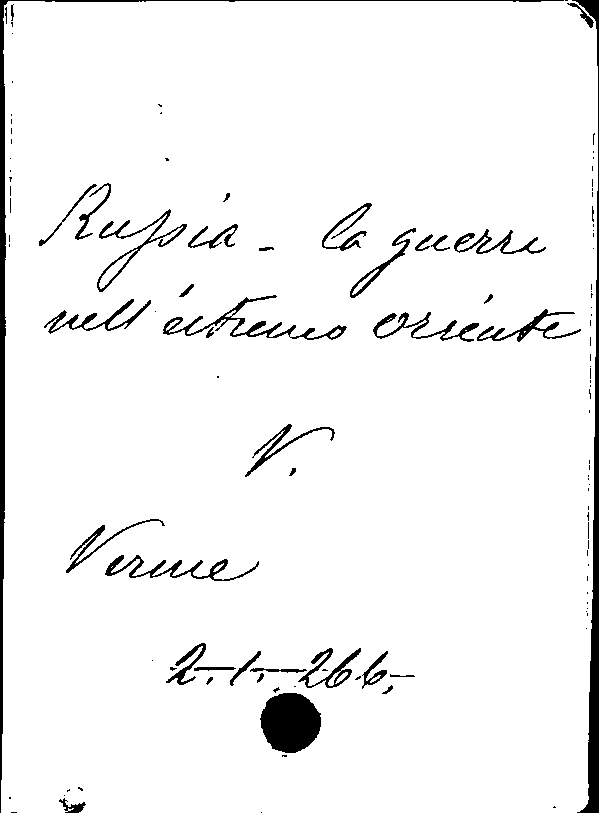 Russia - la guerra
nell'estremo oriente
V.
Verme
2.-1.-266.-